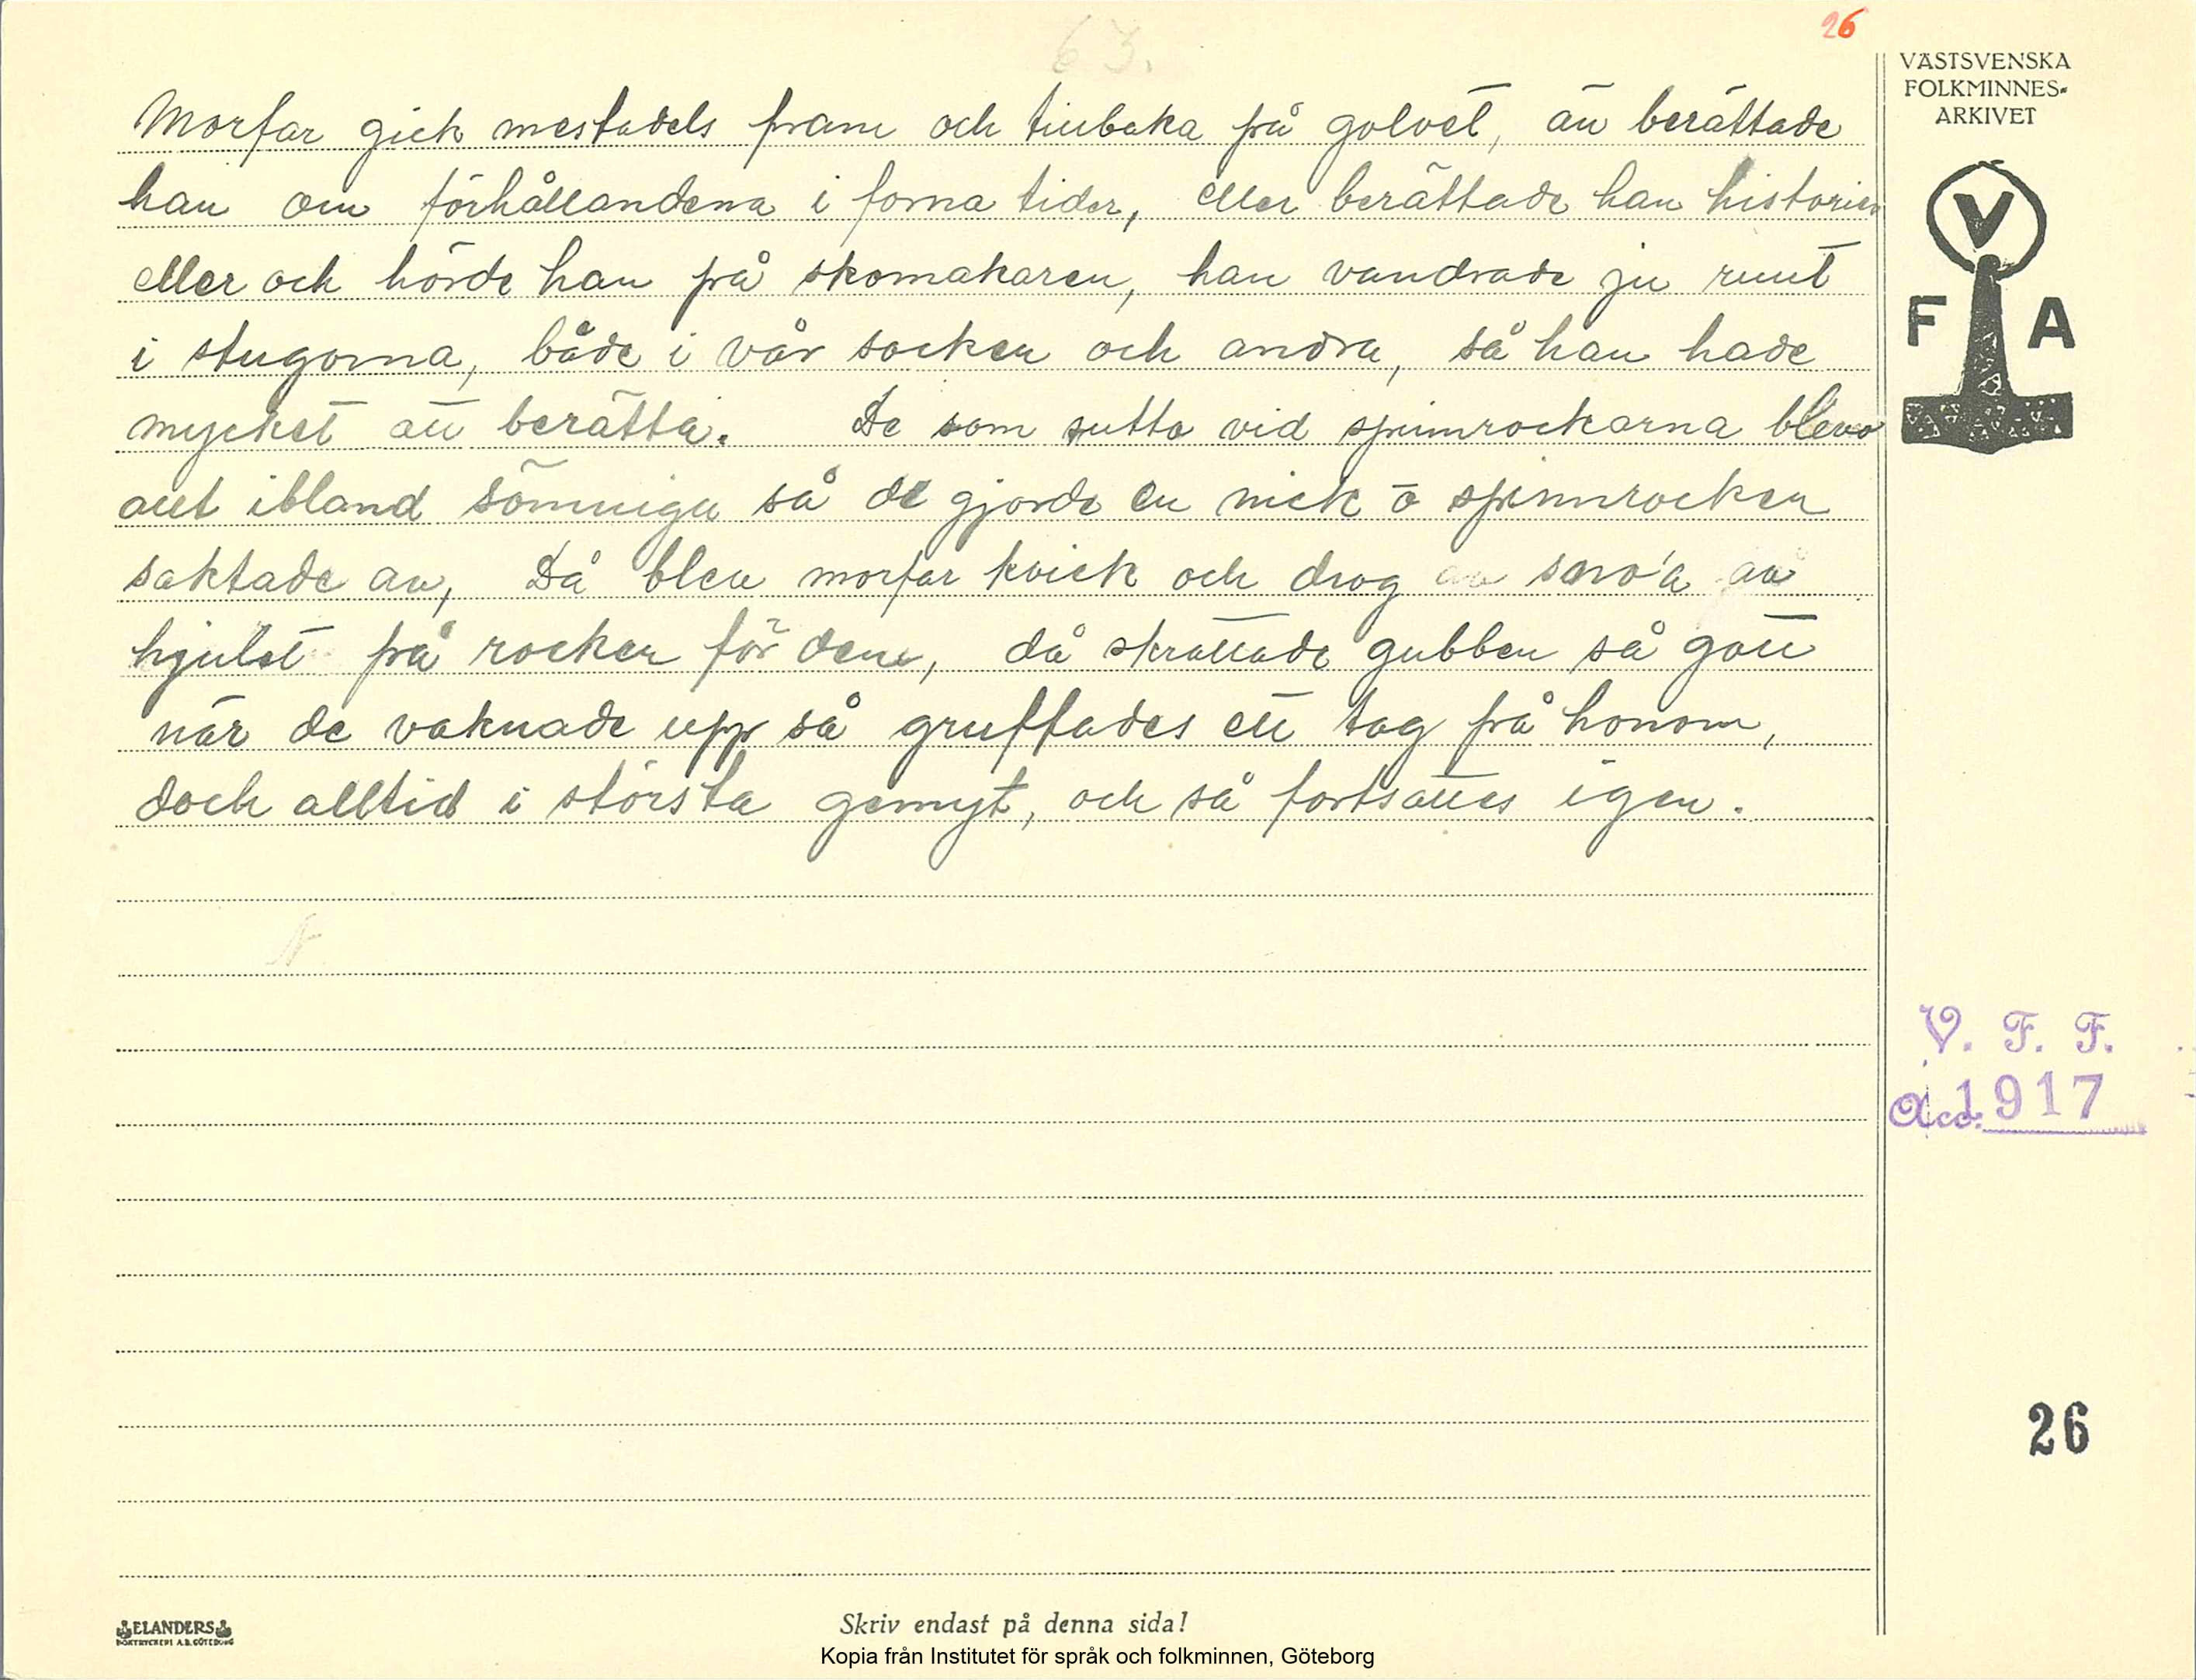 63.
26
Morfar gick mestadels fram och tillbaka på golvet, än berättade
han om förhållandena i forna tider, eller berättade han historier
eller och hörde han på skomakaren, han vandrade ju runt
i stugorna, både i vår socken och andra, så han hade
mycket att berätta. De som sutto vid spinnrockarna blevo
allt ibland sömniga så de gjorde en nick o spinnrocken
saktade av, Då blev morfar kvick och drog snö'a av
hjulet på rocken för dem, då skrattade gubben så gott
när de vaknade upp så gruffades ett tag på honom,
doch alltid i största gemyt, och så fortsattes igen.
VÄSTSVENSKA
FOLKMINNES-
ARKIVET
V
F A
V. F. F.
Acc. 1917
26
ELANDERS
BOKTRYCKERI A.B. GÖTEBORG
Skriv endast på denna sida!
Kopia från Institutet för språk och folkminnen, Göteborg